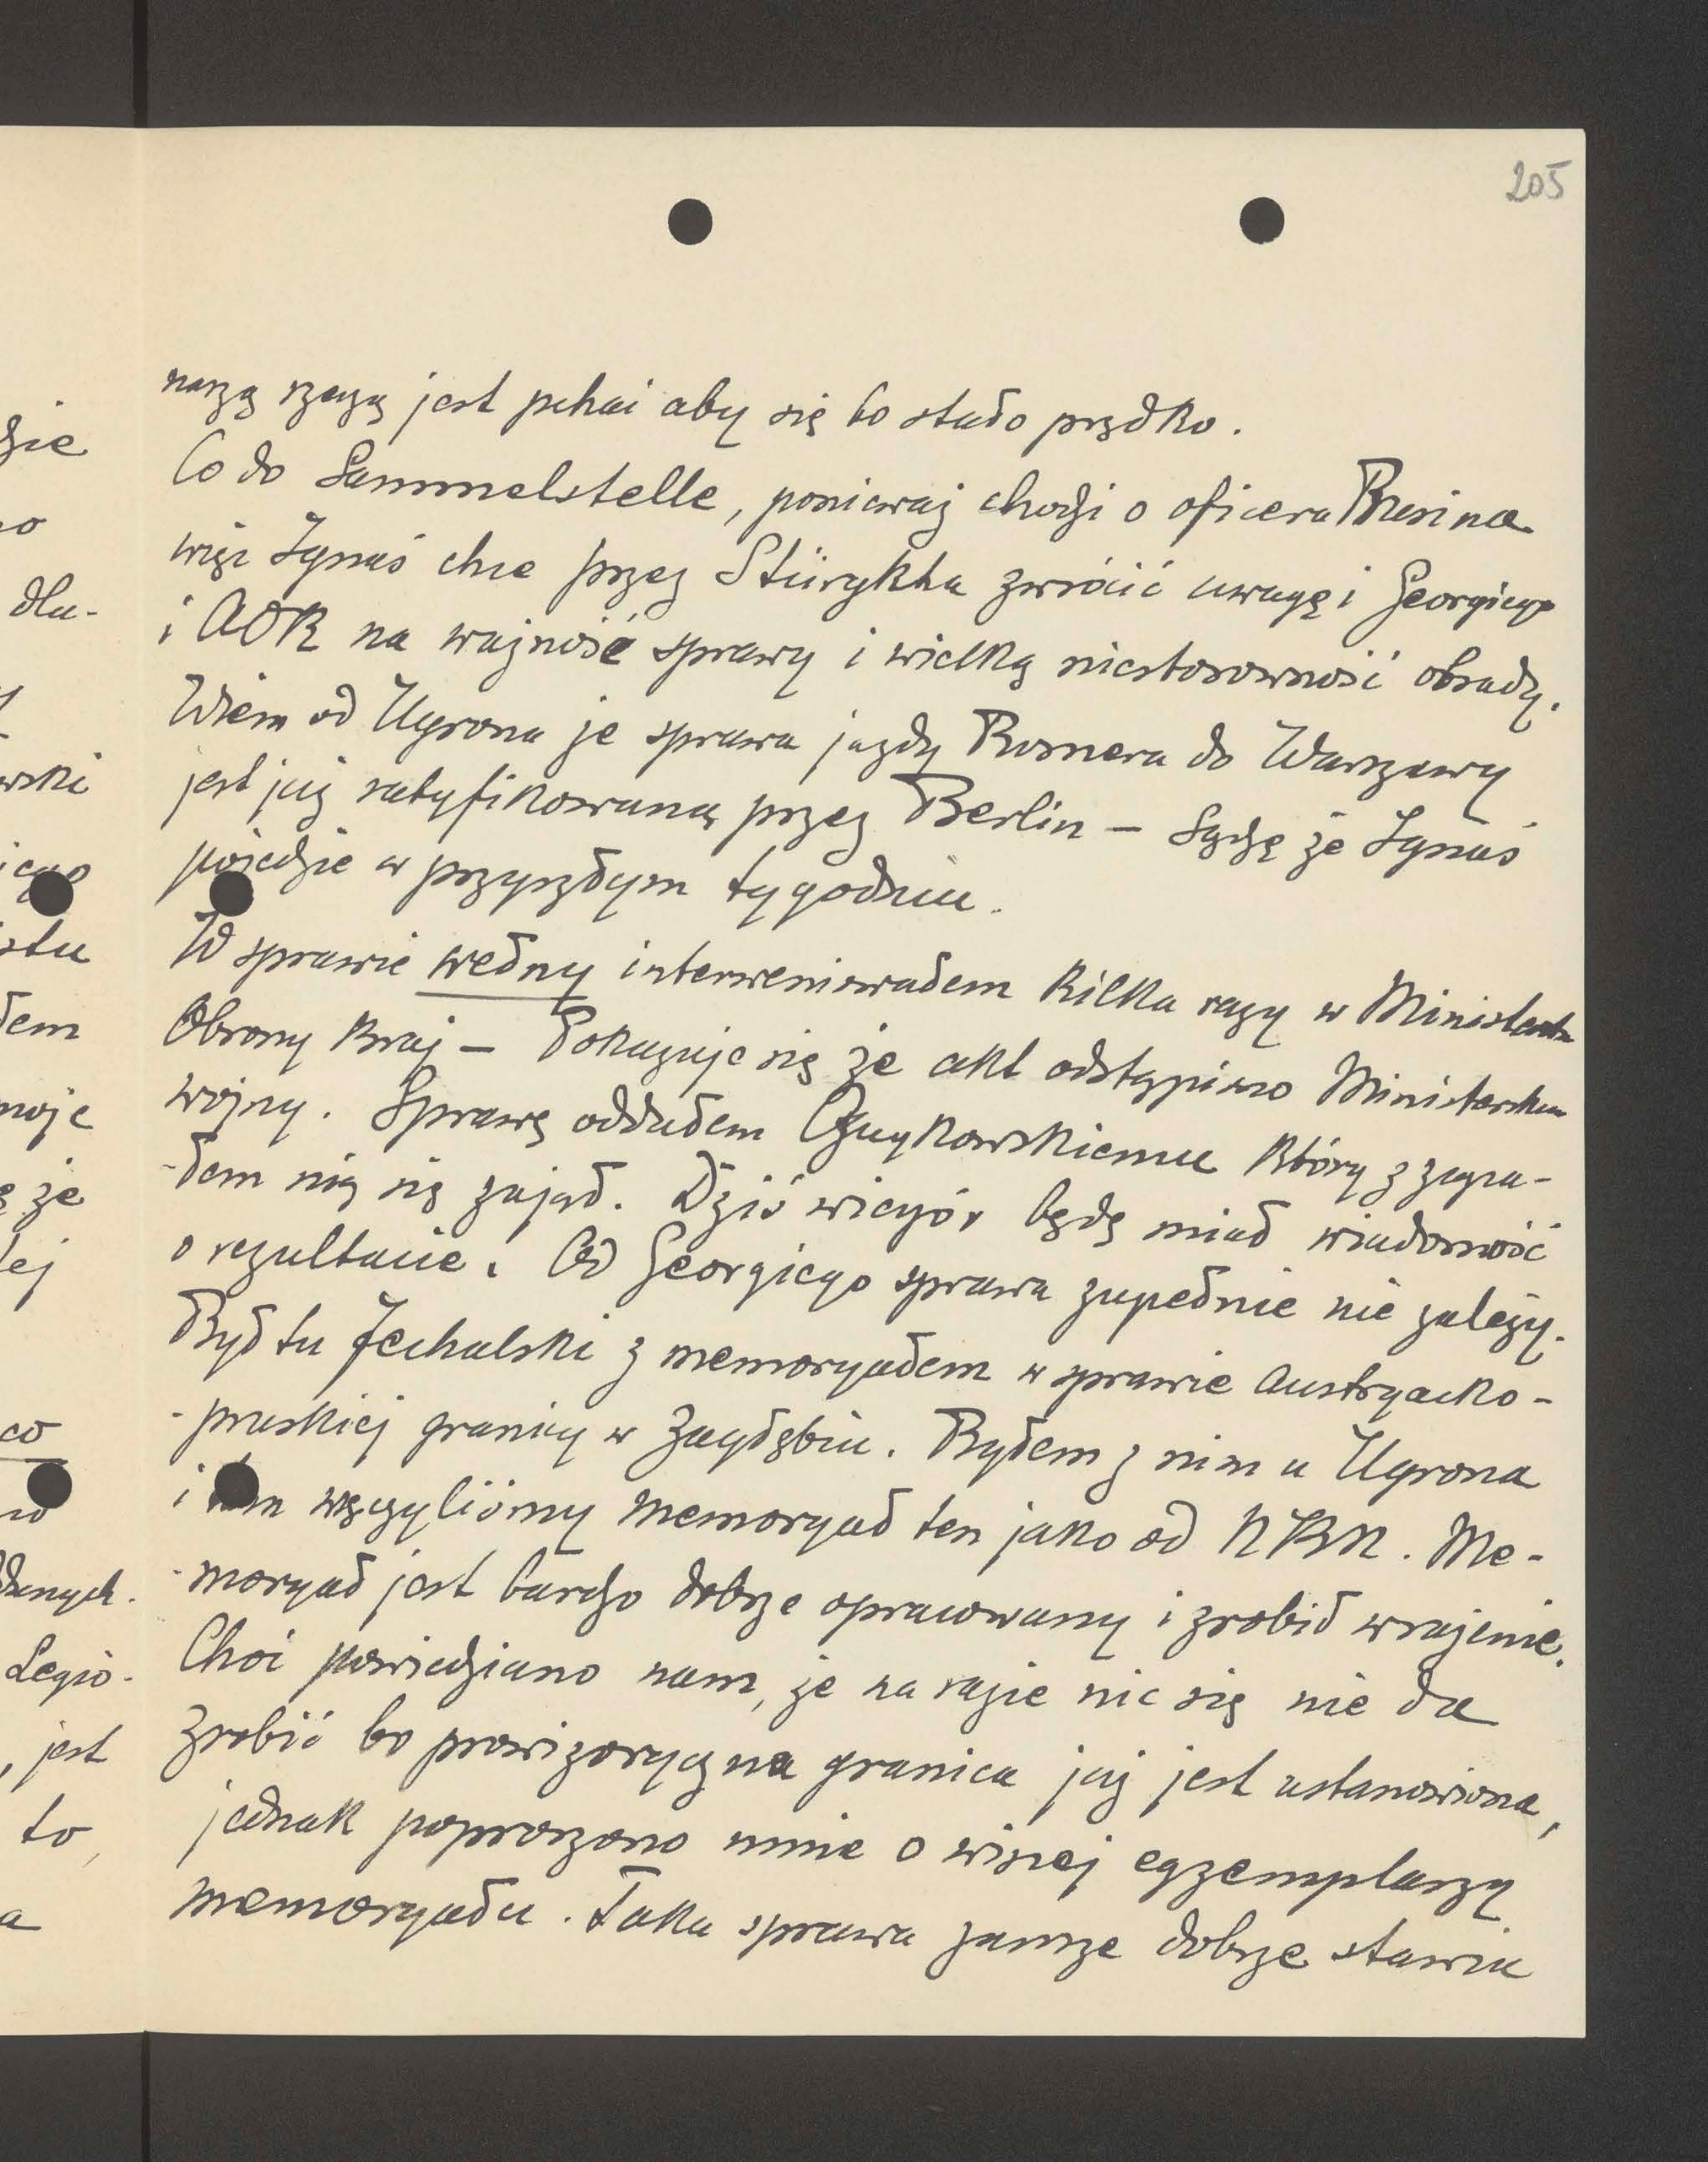 205
naszą rzeczą jest pchać aby się to stało prędko.
Co do Sammelstelle, ponieważ chodzi o oficera
więc Ignaś chce przez Stürgkha zwrócić uwagę i Georgiego
i AOK na ważność sprawy i wielką niestosowność obsady.
Wiem od Ugrona że sprawa jazdy Rosnera do Warszawy
jest już ratyfikowaną przez Berlin – Sądzę że Ignaś
pojedzie w przyszłym tygodniu.
W sprawie wełny interweniowałem kilka razy w Ministerstw
Obrony Kraj – Pokazuje się że akt odstąpiono Ministerstwu
wojny. Sprawę oddałem Czaykowskiemu który z zapa-
-łem nią się zajął. Dziś wieczór będę miał wiadomość
o rezultacie. Od Georgiego sprawa zupełnie nie zależy.
Był tu Zechalski z memoryałem w sprawie austryacko-
-pruskiej granicy w Zagłębiu. Byłem z nim u Ugrona
i tam wręczyliśmy memoryał ten jako od NKN. Me-
-moryał jest bardzo dobrze opracowany i zrobił wrażenie.
Choć powiedziano nam, że na razie nic się nie da
zrobić bo prowizoryczna granica już jest ustanowiona,
jednak poproszono mnie o więcej egzemplarzy
memoryału. Taka sprawa zawsze dobrze stawia
dlu-
wski
iego
łem
moje
ę że
łej
co
Legio-
, jest
to,
a